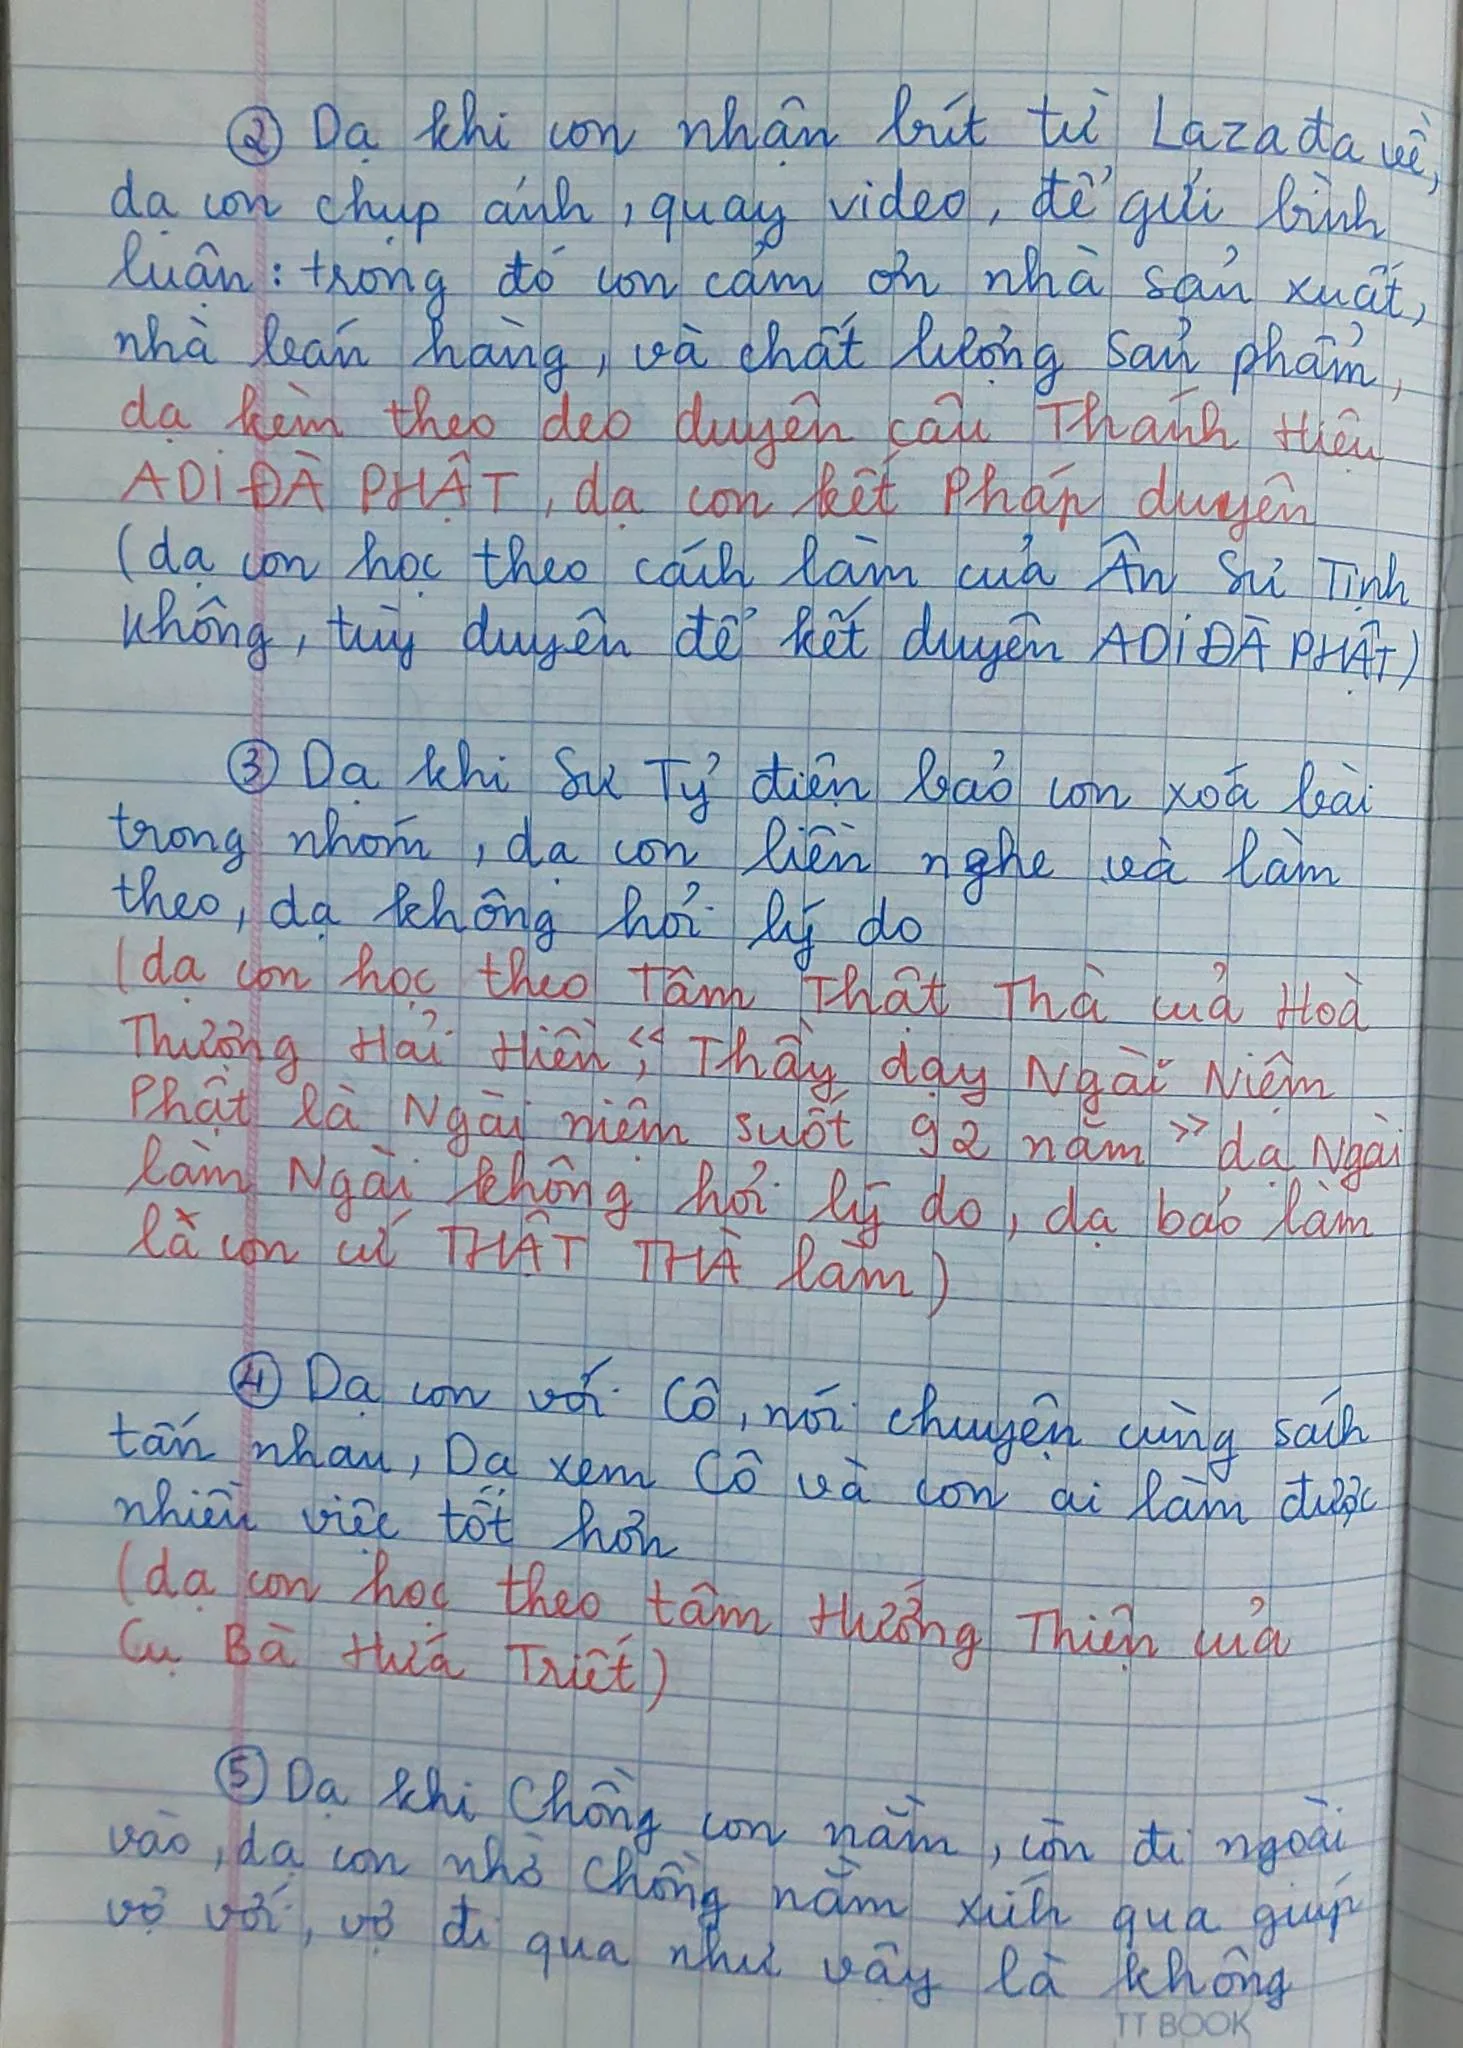 ② Dạ khi con nhận bút từ Lazada về,
dạ con chụp ảnh, quay video, để gửi bình
luận: trong đó con cảm ơn nhà sản xuất,
nhà bán hàng, và chất lượng sản phẩm,
dạ kèm theo deo duyên câu Thánh Hiệu
ADIĐÀ PHẬT, dạ con kết Pháp duyên
(dạ con học theo cách làm của Ân Sư Tịnh
Không, tùy duyên để kết duyên ADIĐÀ PHẬT)
③ Dạ khi Sư Tỷ điện bảo con xoá bài
trong nhóm, dạ con liền nghe và làm
theo, dạ không hỏi lý do
(dạ con học theo Tâm Thật Thà của Hoà
Thượng Hải Hiền, "Thầy dạy Ngài Niệm
Phật là Ngài niệm suốt 92 năm" dạ Ngài
làm Ngài không hỏi lý do, dạ bảo làm
là con cứ THẬT THÀ làm)
④ Dạ con với Cô, nói chuyện cùng sách
tấn nhau, Dạ xem Cô và con ai làm được
nhiều việc tốt hơn
(dạ con học theo tâm Hướng Thiện của
Cụ Bà Hứa Triết)
⑤ Dạ khi Chồng con nằm, con đi ngoài
vào, dạ con nhờ chồng nằm xích qua giúp
vợ với, vợ đi qua như vậy là không
TT BOOK